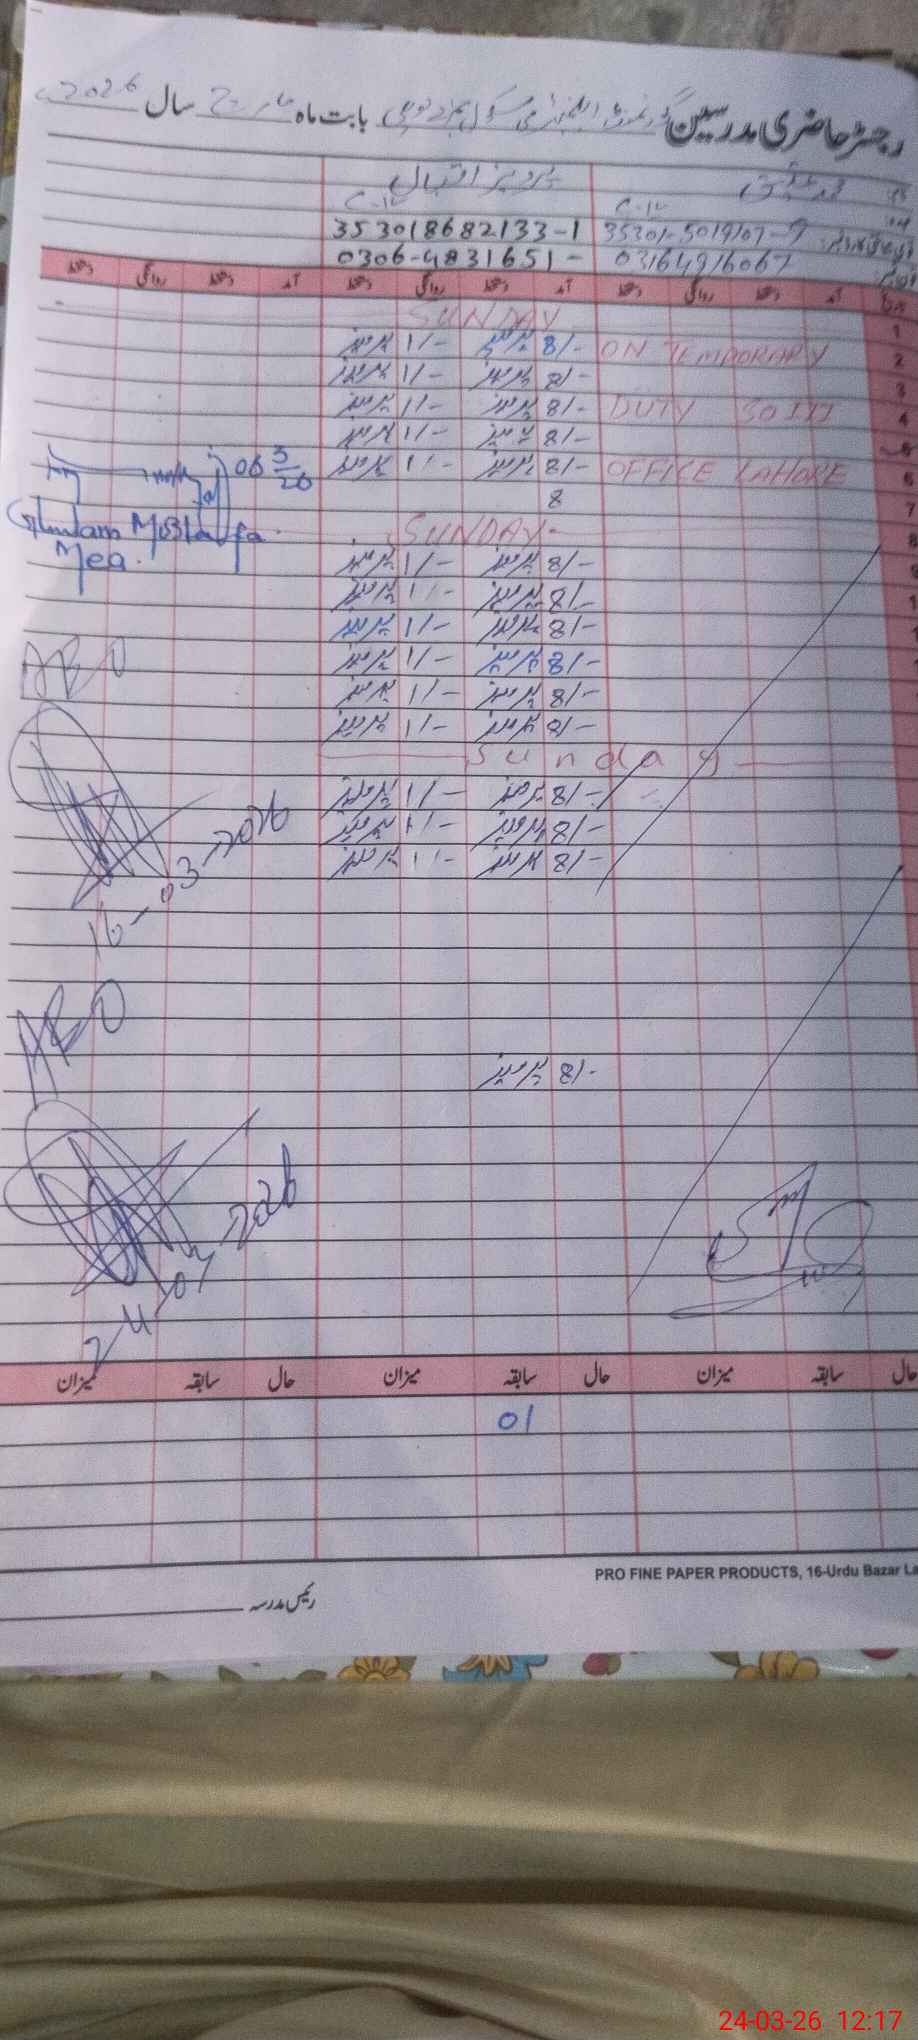 رجسٹر حاضری مدرسین گورنمنٹ ایلیمنٹری سکول بابت ماہ مارچ سال 2026ء
پرویز اقبال
353018682133-1 35301-5019107-9
0306-4831651- 03164916067
آمد دستخط روانگی دستخط آمد دستخط روانگی دستخط آمد دستخط روانگی دستخط
1 SUNDAY
2 ON TEMPORARY 8/- پرویز 1/- پرویز
3 8/- پرویز 1/- پرویز
4 DUTY SO III 8/- پرویز 1/- پرویز
5 8/- پرویز 1/- پرویز
6 OFFICE LAHORE 8/- پرویز 1/- پرویز
06 3/26
7 8
8 SUNDAY-
Ghulam Mustafa
Mea.
8/- پرویز 1/- پرویز
8/- پرویز 1/- پرویز
8/- پرویز 1/- پرویز
8/- پرویز 1/- پرویز
AEO
8/- پرویز 1/- پرویز
8/- پرویز 1/- پرویز
Sunday
8/- پرویز 1/- پرویز
8/- پرویز 1/- پرویز
8/- پرویز 1/- پرویز
16-03-2026
AEO
8/- پرویز
24-03-2026
حال سابقہ میزان حال سابقہ میزان حال سابقہ میزان
01
PRO FINE PAPER PRODUCTS, 16-Urdu Bazar La
رئیس مدرسہ
24-03-26 12:17